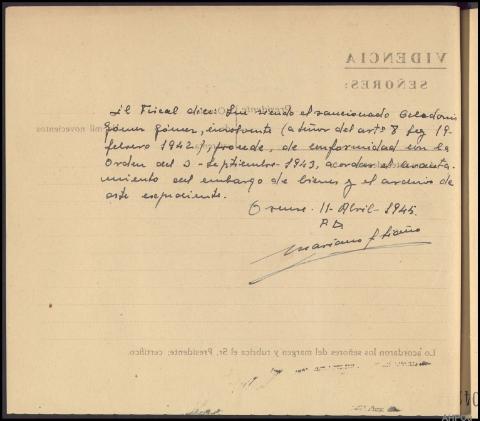 El Fiscal dice: Que siendo el sancionado Celadonio
Gómez Gómez, insolvente (a tenor del artº 8 Ley 19-
febrero 1942) procede, de conformidad con la
Orden del 2-Septiembre-1943, acordar el levanta-
miento del embargo de bienes y el archivo de
este expediente.
Orense 11-Abril-1945.
Mariano
VIDENCIA
SEÑORES:
Presidente
mil novecientos
Lo acordaron los señores del margen y rubrica el Sr. Presidente; certifico.